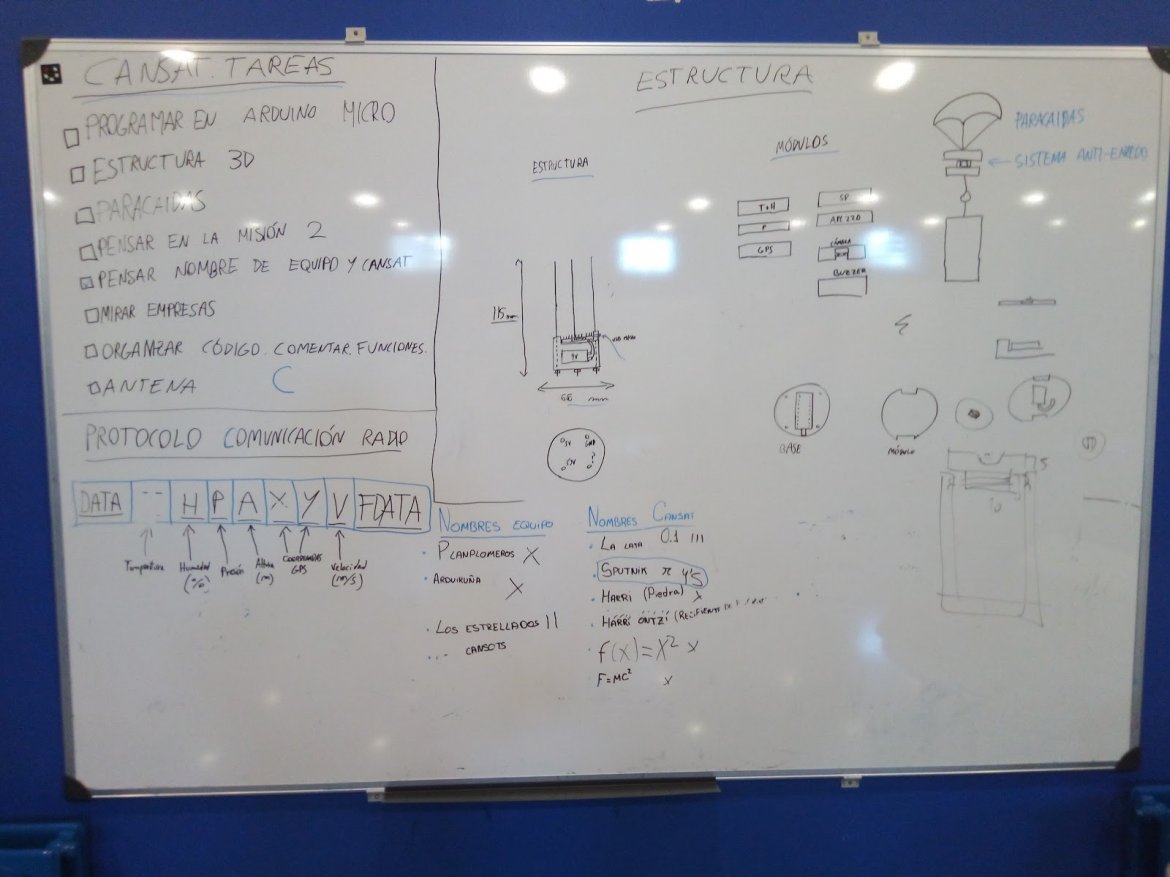 CANSAT. TAREAS
PROGRAMAR EN ARDUINO MICRO
ESTRUCTURA 3D
PARACAIDAS
PENSAR EN LA MISIÓN 2
PENSAR NOMBRE DE EQUIPO Y CANSAT
MIRAR EMPRESAS
ORGANIZAR CÓDIGO. COMENTAR. FUNCIONES.
ANTENA
PROTOCOLO COMUNICACIÓN RADIO
DATA H P A X Y V FDATA
Temperatura
Humedad (%)
Presión
Altura (m)
COORDENADAS GPS
Velocidad (m/s)
ESTRUCTURA
ESTRUCTURA
115 mm
9V
66 mm
5V GND
?
MÓDULOS
T+H
P
GPS
SP
APC 220
CÁMARA
BUZZER
PARACAIDAS
SISTEMA ANTI-ENREDO
BASE
MÓDULO
NOMBRES EQUIPO
PLANPLOMEROS X
ARDUIKUÑA X
LOS ESTRELLADOS II
... CANSOTS
NOMBRES CANSAT
LA LATA 0.1 III
SPUTNIK π
HARRI (Piedra) X
HARRI ONTZI (RECIPIENTE
f(x)=X² X
F=MC² X